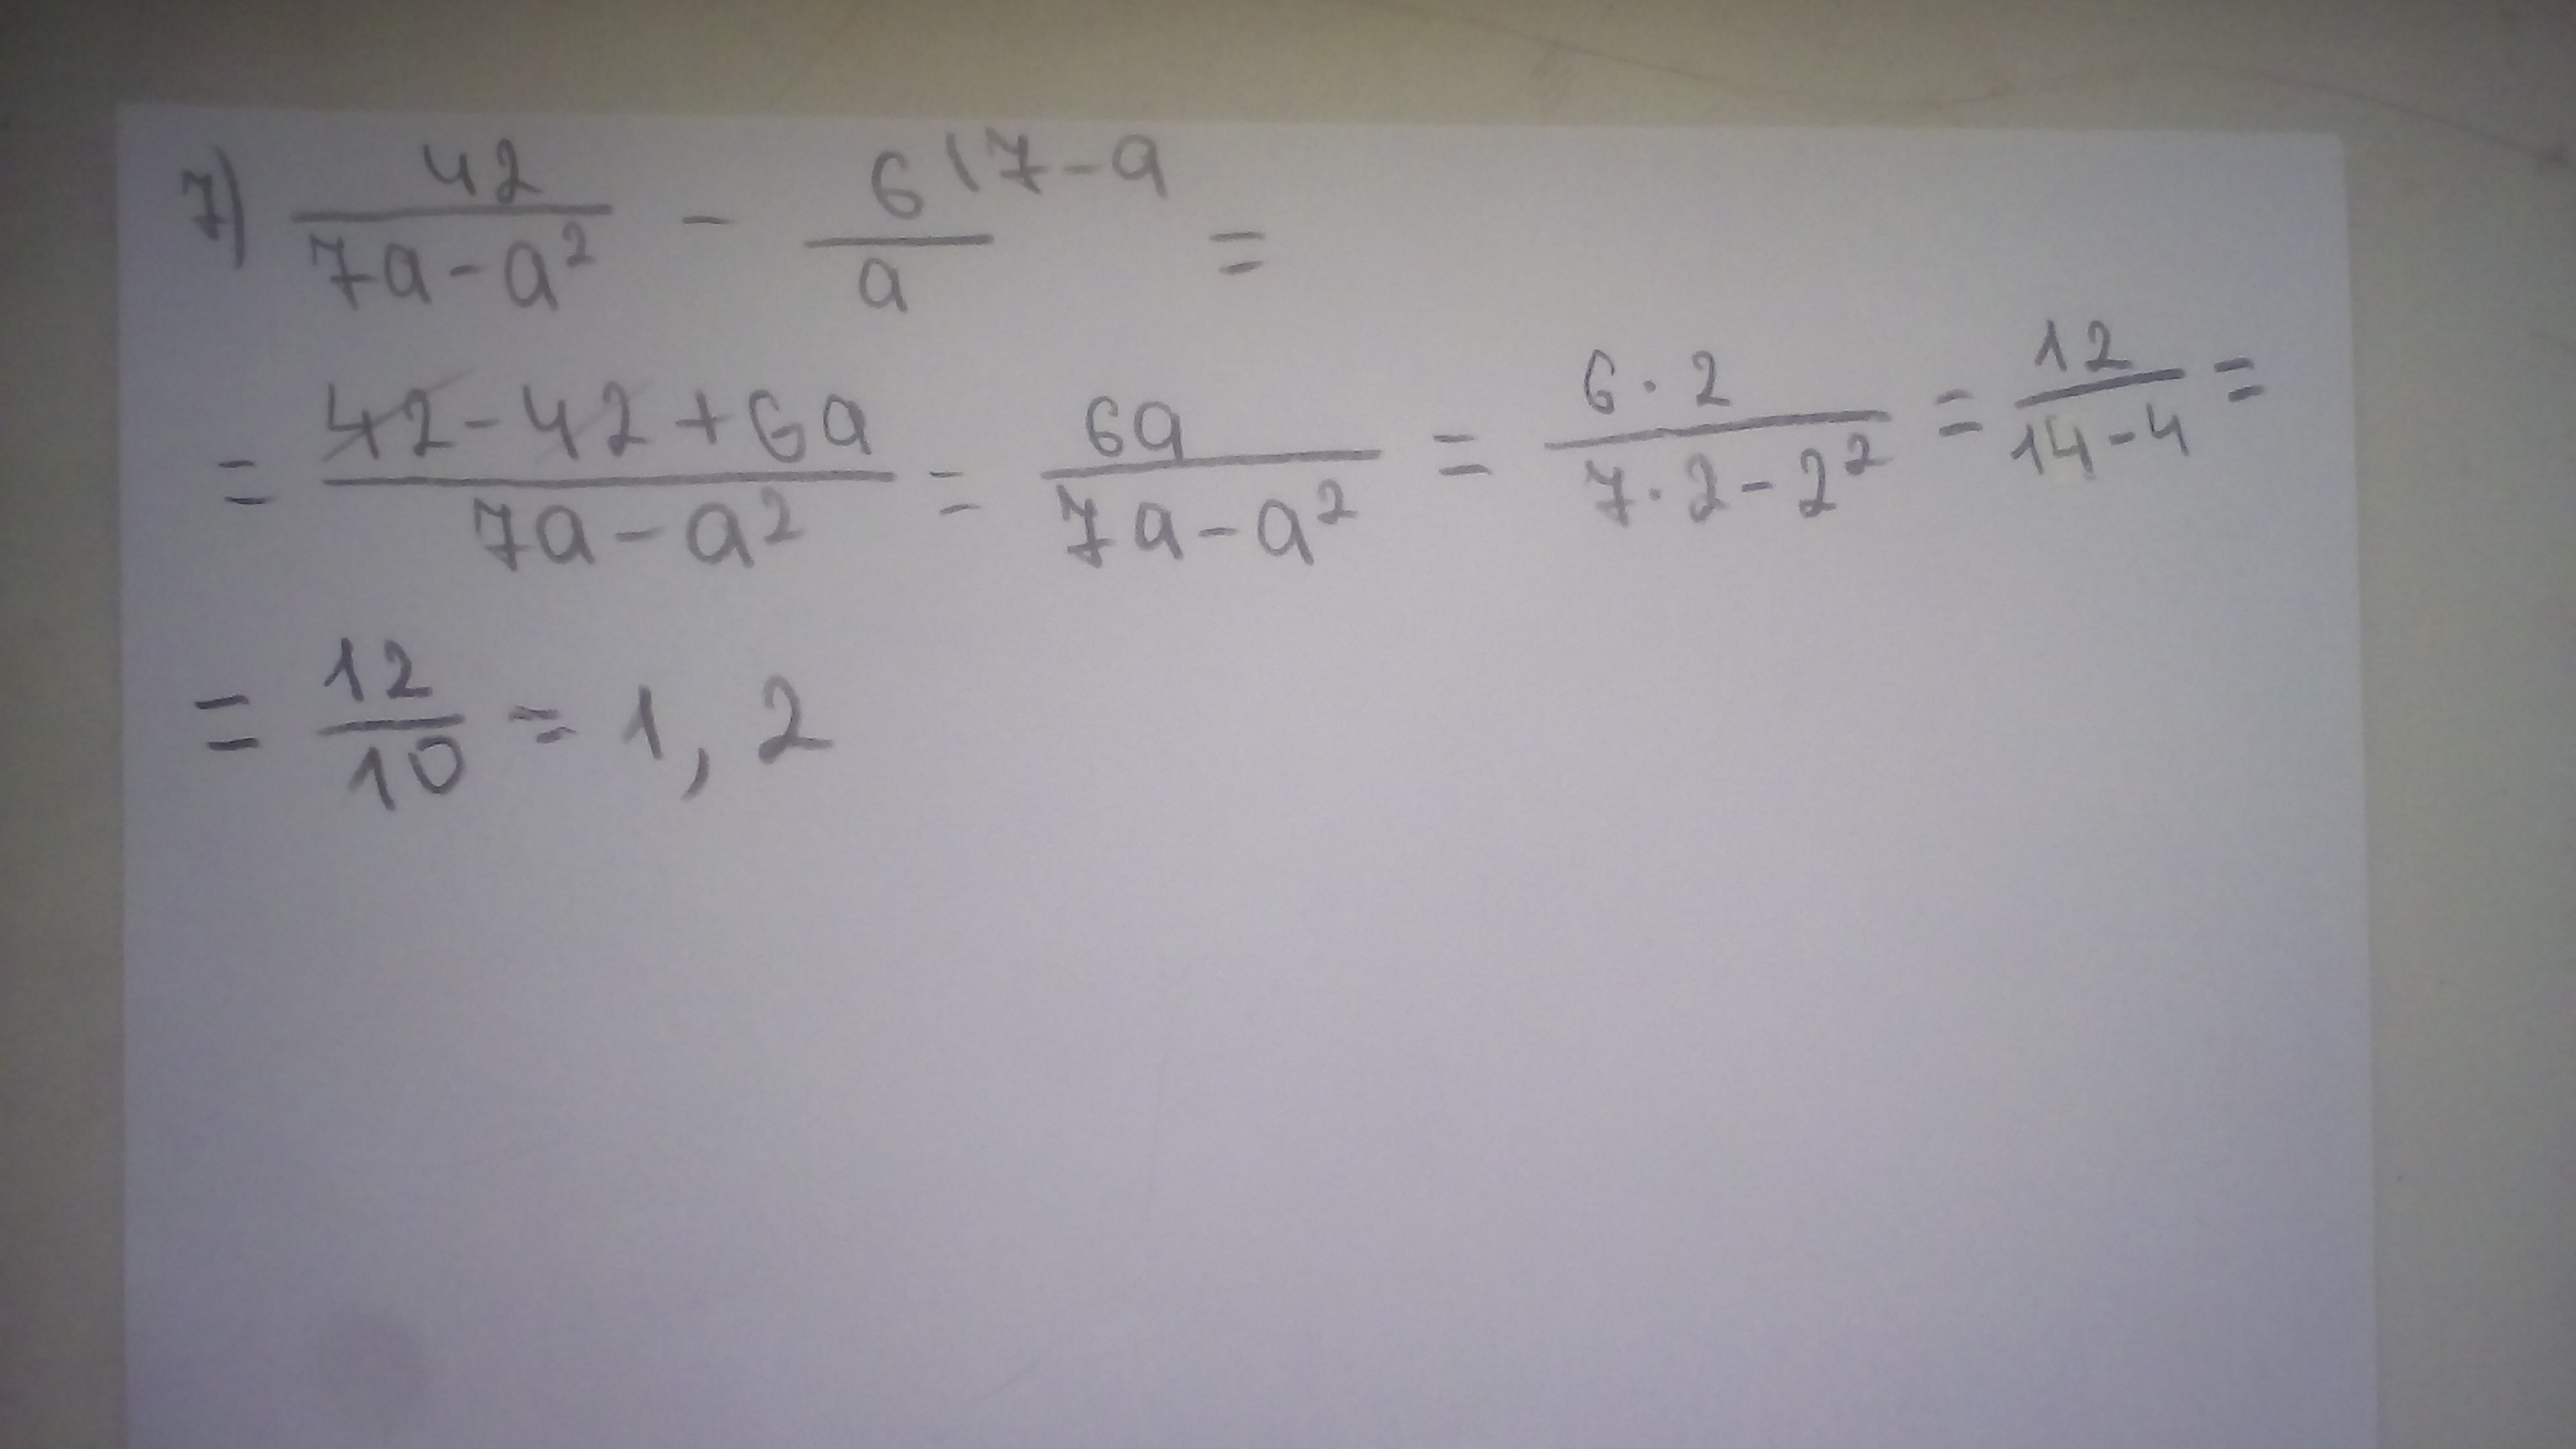 7) 42/(7a - a²) - 6\7-a/a =
= (42 - 42 + 6a)/(7a - a²) = 6a/(7a - a²) = (6 · 2)/(7 · 2 - 2²) = 12/(14 - 4) =
= 12/10 = 1,2